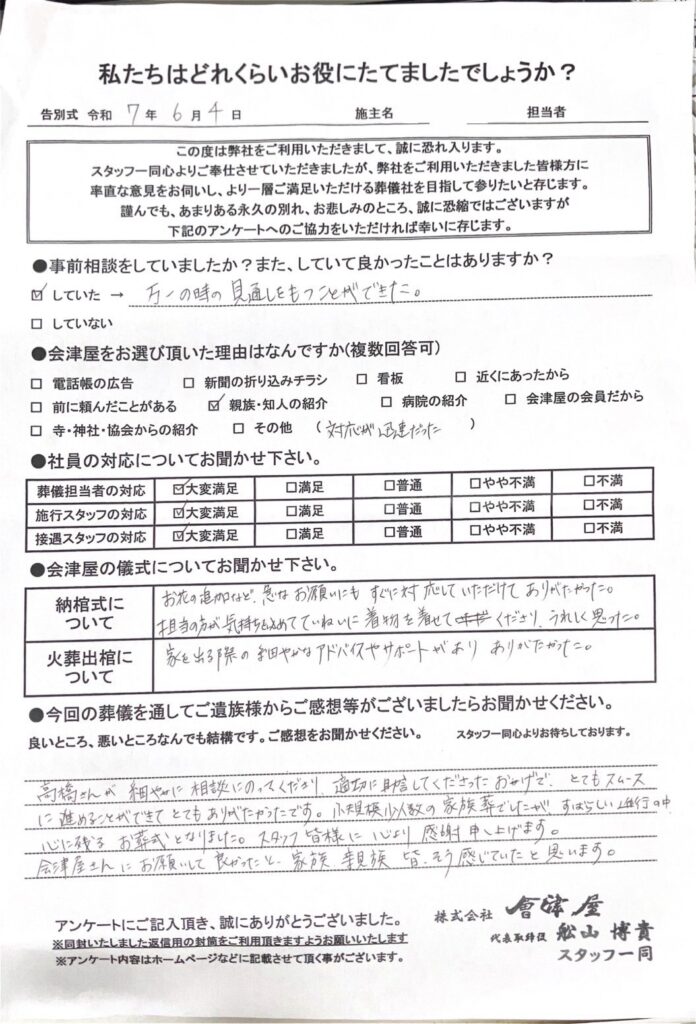 私たちはどれくらいお役にたてましたでしょうか?
告別式 令和 7 年 6 月 4 日 施主名 担当者
この度は弊社をご利用いただきまして、誠に恐れ入ります。
スタッフ一同心よりご奉仕させていただきましたが、弊社をご利用いただきました皆様方に
率直な意見をお伺いし、より一層ご満足いただける葬儀社を目指して参りたいと存じます。
謹んでも、あまりある永久の別れ、お悲しみのところ、誠に恐縮ではございますが
下記のアンケートへのご協力をいただければ幸いに存じます。
●事前相談をしていましたか?また、していて良かったことはありますか?
☑ していた → 万一の時の見通しをもつことができた。
□ していない
●会津屋をお選び頂いた理由はなんですか(複数回答可)
□ 電話帳の広告 □ 新聞の折り込みチラシ □ 看板 □ 近くにあったから
□ 前に頼んだことがある ☑ 親族・知人の紹介 □ 病院の紹介 □ 会津屋の会員だから
□ 寺・神社・協会からの紹介 □ その他 (対応が迅速だった)
●社員の対応についてお聞かせ下さい。
葬儀担当者の対応 ☑大変満足 □満足 □普通 □やや不満 □不満
施行スタッフの対応 ☑大変満足 □満足 □普通 □やや不満 □不満
接遇スタッフの対応 ☑大変満足 □満足 □普通 □やや不満 □不満
●会津屋の儀式についてお聞かせ下さい。
納棺式に
ついて
お花の追加など、急なお願いにもすぐに対応していただけてありがたかった。
担当の方が気持ちを込めてていねいに着物を着せてくださり、うれしく思った。
火葬出棺に
ついて
家を出る際の細やかなアドバイスやサポートがありありがたかった。
●今回の葬儀を通してご遺族様からご感想等がございましたらお聞かせください。
良いところ、悪いところなんでも結構です。ご感想をお聞かせください。 スタッフ一同心よりお待ちしております。
高橋さんが細やかに相談にのってくださり、適切に助言してくださったおかげで、とてもスムーズ
に進めることができてとてもありがたかったです。小規模少人数の家族葬でしたが、すばらしい進行の中、
心に残るお葬式となりました。スタッフ皆様に心より感謝申し上げます。
会津屋さんにお願いして良かったと、家族親族皆、そう感じていたと思います。
アンケートにご記入頂き、誠にありがとうございました。
※同封いたしました返信用の封筒をご利用頂きますようお願いいたします
※アンケート内容はホームページなどに記載させて頂く事がございます。
株式会社 會津屋
代表取締役 舩山 博貴
スタッフ一同